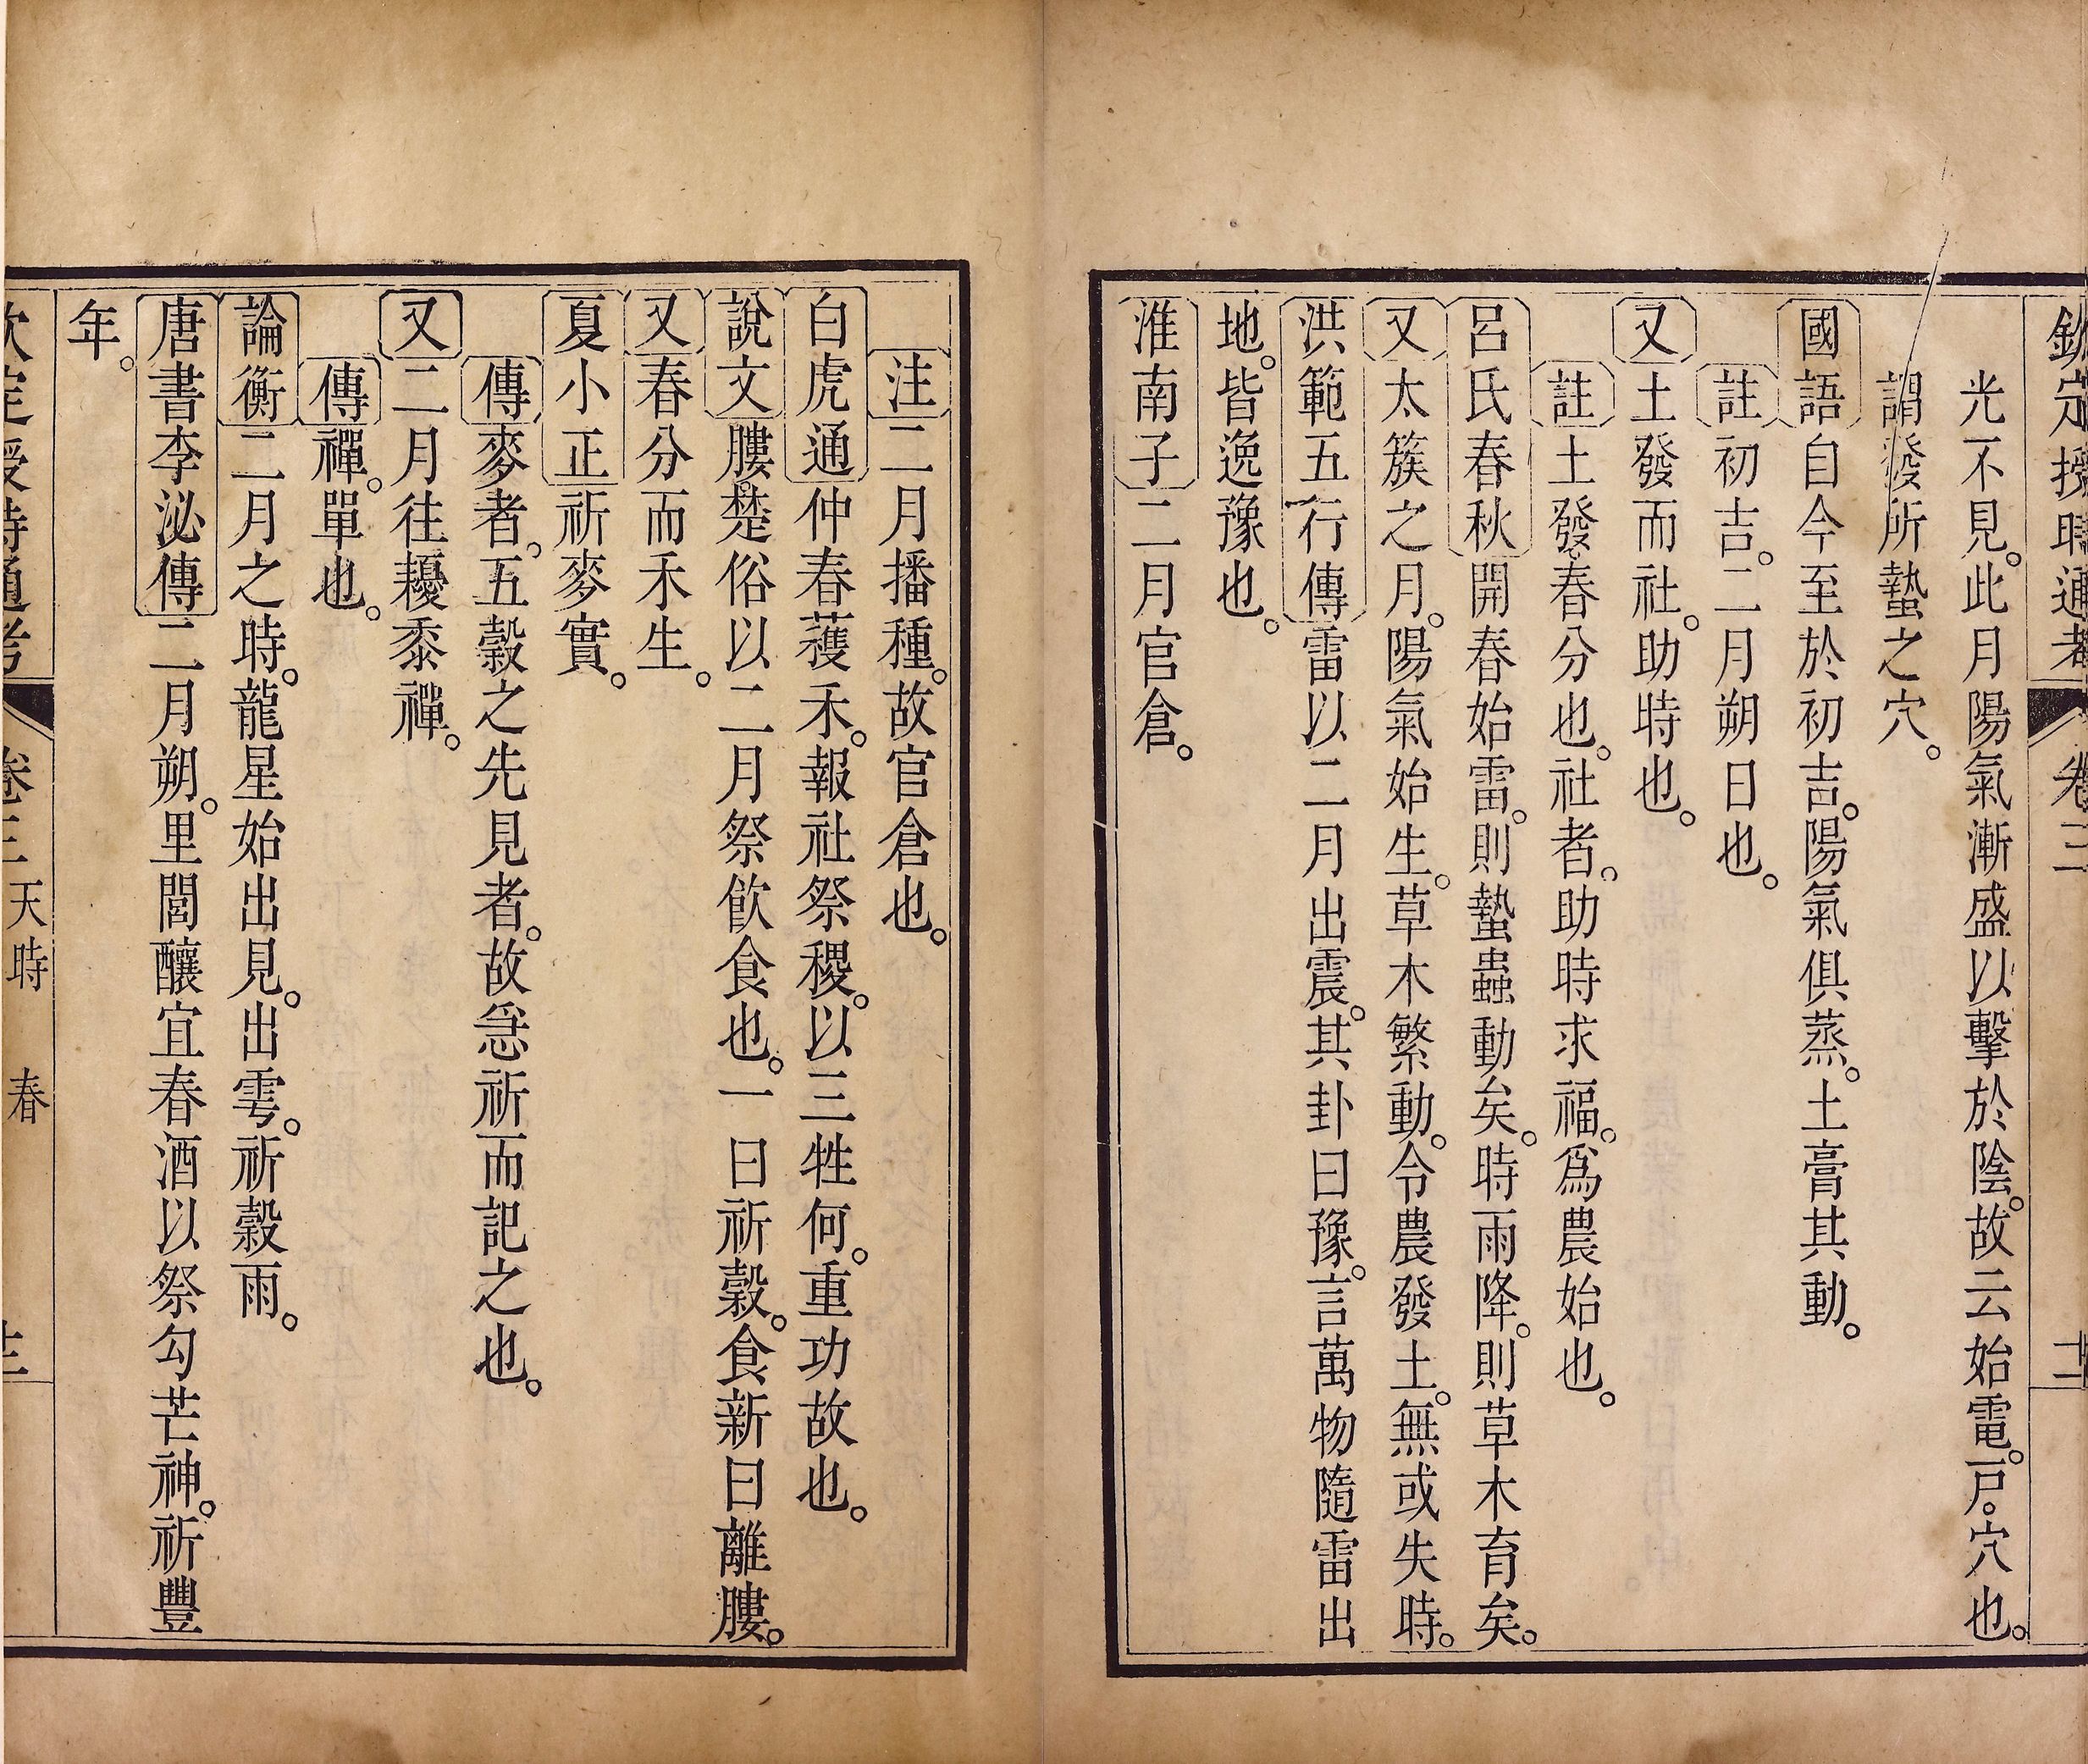 欽定授時通考 卷三 十二
光不見。此月陽氣漸盛以擊於陰。故云始電。戶。穴也。
謂發所蟄之穴。
國語自今至於初吉。陽氣俱蒸。土膏其動。
註初吉。二月朔日也。
又土發而社。助時也。
註土發。春分也。社者。助時求福。爲農始也。
呂氏春秋開春始雷。則蟄蟲動矣。時雨降。則草木育矣。
又太簇之月。陽氣始生。草木繁動。令農發土。無或失時。
洪範五行傳雷以二月出震。其卦曰豫。言萬物隨雷出
地。皆逸豫也。
淮南子二月官倉。
注二月播種。故官倉也。
白虎通仲春蒦禾。報社祭稷。以三牲何。重功故也。
說文膢。楚俗以二月祭飮食也。一曰祈穀。食新曰離膢。
又春分而禾生。
夏小正祈麥實。
傳麥者。五穀之先見者。故急祈而記之也。
又二月往耰黍襌。
傳襌。單也。
論衡二月之時。龍星始出見。出雩。祈穀雨。
唐書李泌傳二月朔。里閭釀宜春酒以祭勾芒神。祈豐
年。
欽定授時通考 卷三 天時 春 十三